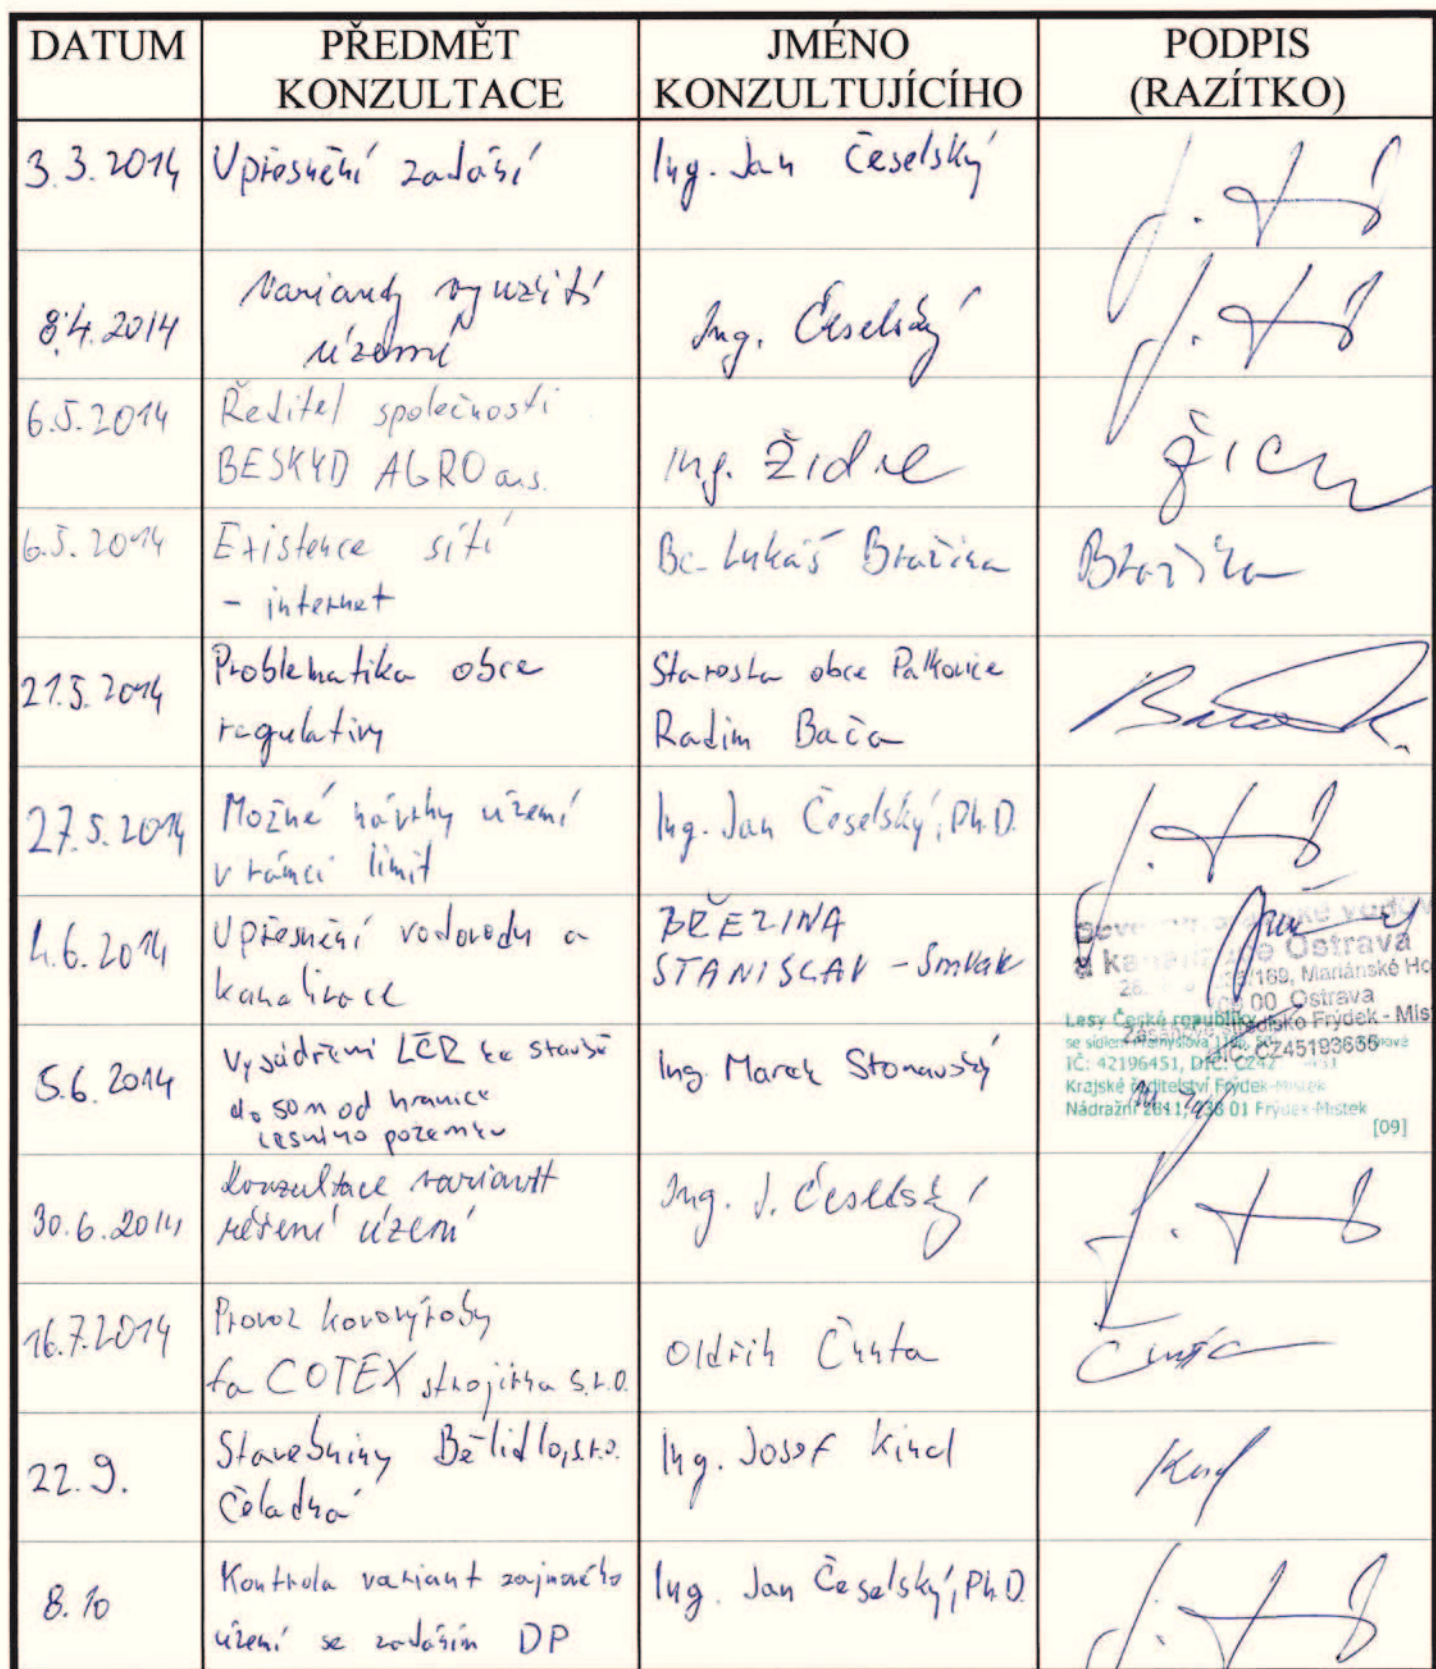 DATUM
PŘEDMĚT
KONZULTACE
JMÉNO
KONZULTUJÍCÍHO
PODPIS
(RAZÍTKO)
3.3.2014
Upřesnění zadání
Ing. Jan Češelský
8.4.2014
Varianty využití
území
Ing. Češelský
6.5.2014
Ředitel společnosti
BESKYD AGRO a.s.
Ing.
6.5.2014
Existence sítí
- internet
Bc. Lukáš
21.5.2014
Problematika obce
regulativy
Starosta obce Palkovice
Radim Bača
27.5.2014
Možné návrhy území
v rámci limit
Ing. Jan Češelský, Ph.D.
4.6.2014
Upřesnění vodovodu a
kanalizace
BŘEZINA
STANISLAV - SmVak
a Ostrava
/169, Mariánské Ho
00 Ostrava
Frýdek - Mís
CZ45193665
5.6.2014
Vyjádření LČR ke stavbě
do 50 m od hranice
lesního pozemku
Ing. Marek Stonavský
Lesy České republiky
se sídlem Přemyslova
IČ: 42196451, DIČ: CZ42
Krajské ředitelství Frýdek-Místek
Nádražní 2811, 738 01 Frýdek-Místek
[09]
30.6.2014
Konzultace variant
řešení území
Ing. J. Češelský
16.7.2014
Provoz kovovýroby
fa COTEX strojírna s.r.o.
Oldřich Čunta
22.9.
Stavebniny Bělidlo, s.r.o.
Čeladná
Ing. Josef Kincl
8.10
Kontrola variant zájmového
území se zadáním DP
Ing. Jan Češelský, Ph.D.